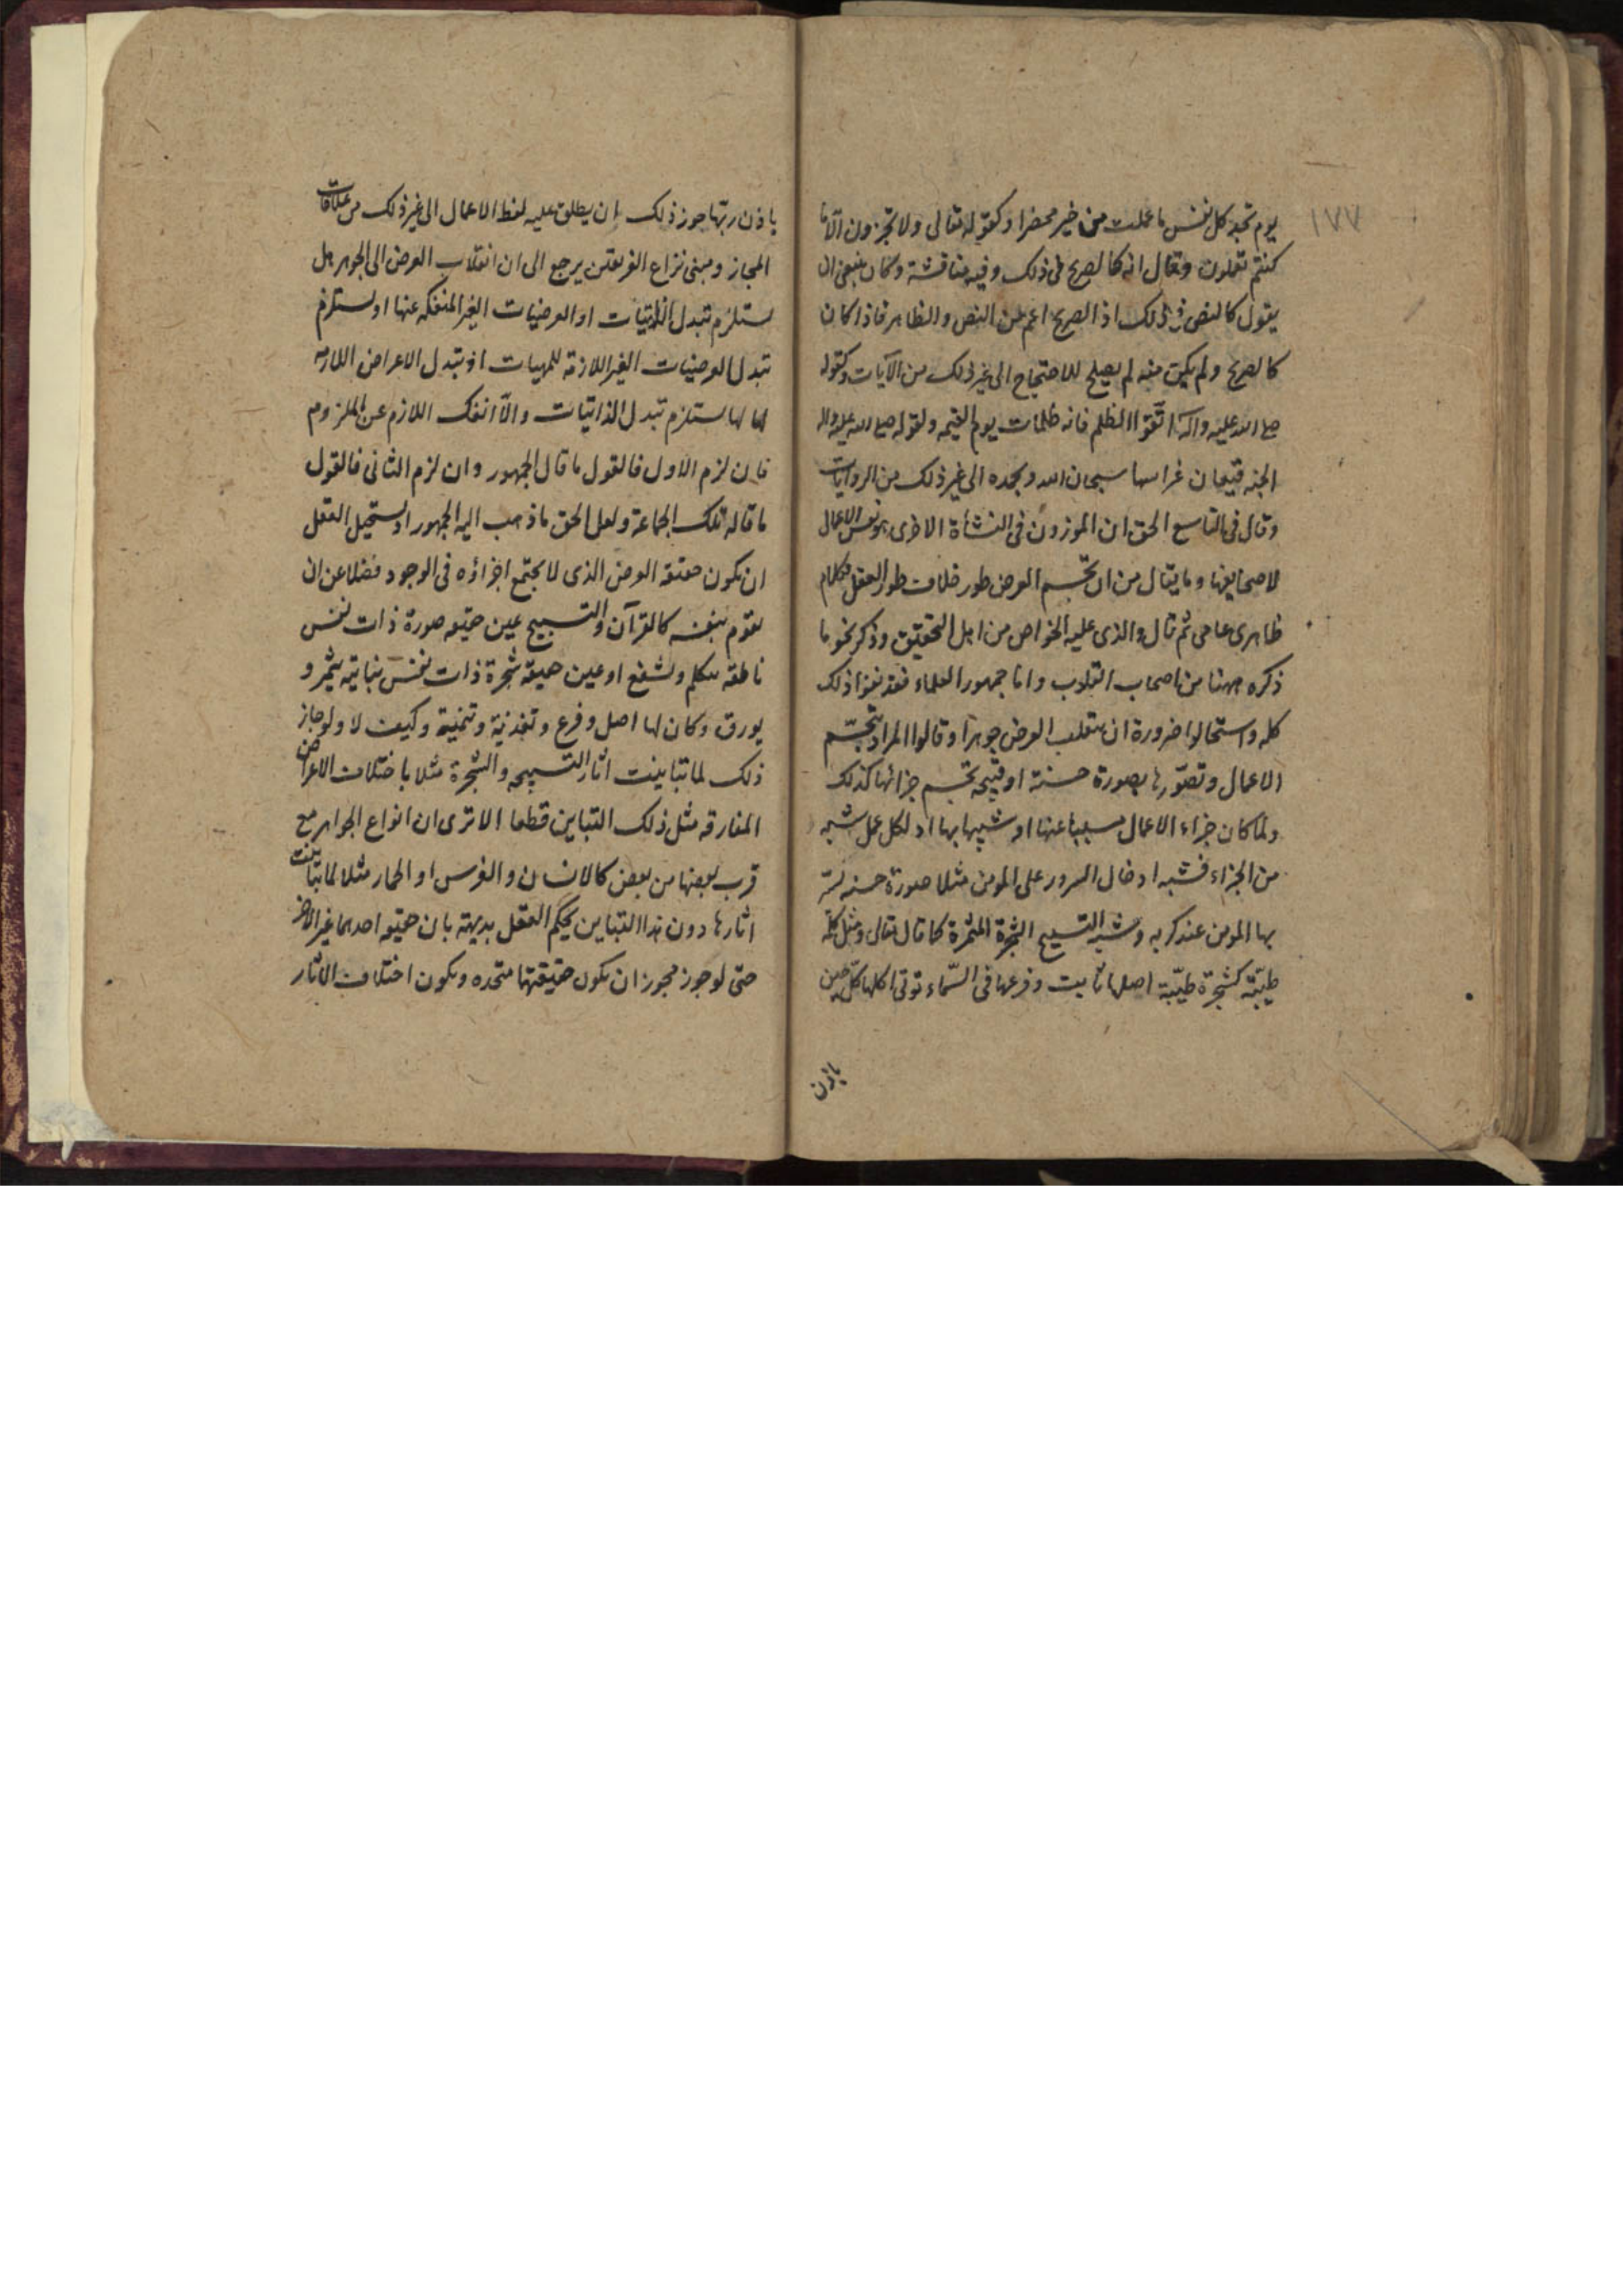 ١٧٧
يوم تجد كل نفس ما عملت من خير محضرا وكقوله تعالى ولا تجزون الا ما
كنتم تعملون وقال انه كالصريح فى ذلك وفيه مناقشة وكان ينبغى ان
يقول كالنص فى ذلك اذ الصريح اعم من النص والظاهر فاذا كان
كالصريح ولم يكن منه لم يصلح للاحتجاج الى غير ذلك من الآيات وكقوله
صلى الله عليه وآله اتقوا الظلم فانه ظلمات يوم القيمه ولقوله صلى الله عليه واله
الجنه قيعان غراسها سبحان الله وبحمده الى غير ذلك من الروايات
وقال فى التاسع الحق ان الموزون فى النشأة الاخرى هو نفس الاعمال
لا صحايفها وما يقال من ان تجسم العرض طور خلاف طور العقل فكلام
ظاهرى عامى ثم قال والذى عليه الخواص من اهل التحقيق وذكر نحو ما
ذكره ههنا من اصحاب القلوب واما جمهور العلماء فقد نفوا ذلك
كله واستحالوا ضرورة ان ينقلب العرض جوهرا وقالوا المراد بتجسّم
الاعمال وتصوّرها بصورة حسنة او قبيحه تجسم جزائها كذلك
ولما كان جزاء الاعمال مسببا عنها او شبيها بها اذ لكل عمل شبه
من الجزاء فشبه ادخال السرور على المومن مثلا صورة حسنه يسر
بها المومن عند كربه وشبه التسبيح الشجرة المثمرة كما قال تعالى ومثل كلمة
طيّبة كشجرة طيّبة اصلها ثابت وفرعها فى السّماء توتى اكلها كلّ حين
باذن
باذن ربّها جوز ذلك ان يطلق عليه لفظ الاعمال الى غير ذلك من علاقات
المجاز ومبنى نزاع الفريقين يرجع الى ان انقلاب العرض الى الجوهر هل
يستلزم تبدل الذاتيات او العرضيات الغير المنفكه عنها او يستلزم
تبدل العرضيات الغير اللازمة للمهيات اذ تبدل الاعراض اللازمه
لها يستلزم تبدل الذاتيات والّا انفك اللازم عن الملزوم
فان لزم الاول فالقول ما قال الجمهور وان لزم الثانى فالقول
ما قاله تلك الجماعة ولعل الحق ما ذهب اليه الجمهور اذ يستحيل العقل
ان يكون حقيقه العرض الذى لا يجتمع اجزاؤه فى الوجود فضلا عن ان
يقوم بنفسه كالقرآن والتسبيح عين حقيقه صورة ذات نفس
ناطقه يتكلم ويشفع او عين حقيقه شجرة ذات نفس نباتيه يثمر و
يورق وكان لها اصل وفرع وتغذية وتنمية وكيف لا ولو جاز
ذلك لما تباينت اثار التسبيحه والشجرة مثلا باختلاف الاعراض
المفارقه مثل ذلك التباين قطعا الا ترى ان انواع الجواهر مع
قرب بعضها من بعض كالانسان والفرس او الحمار مثلا لما تباينت
اثارها دون هذا التباين يحكم العقل بديهة بان حقيقه احدهما غير الاخر
حتى لو جوز مجوز ان يكون حقيقتهما متحده ويكون اختلاف الاثار